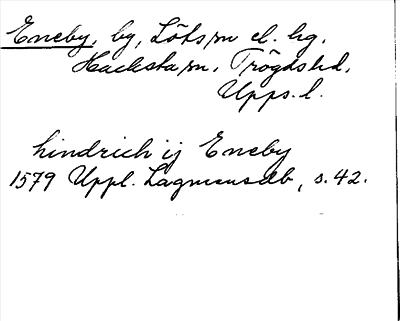 Eneby, by, Löts sn el. hg.
Hacksta sn. Trögds hd.
Upps. l.
hindrich ij Eneby
1579 Uppl. Lagmansdb, s. 42.